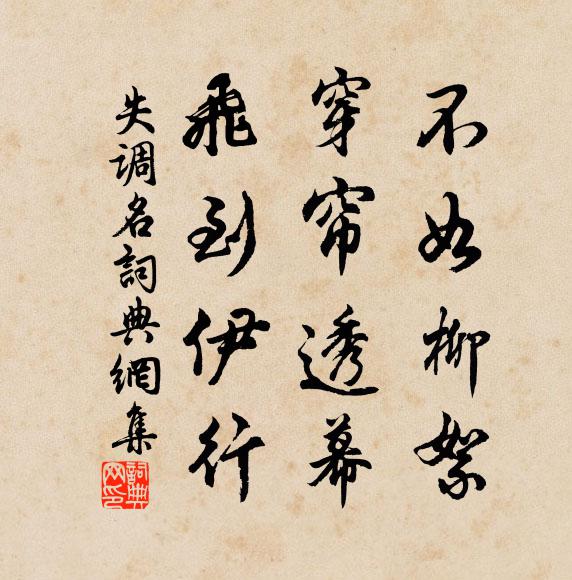 不如柳絮
穿帘透幕
飛到伊行
失调名詞典網集
詞典网印